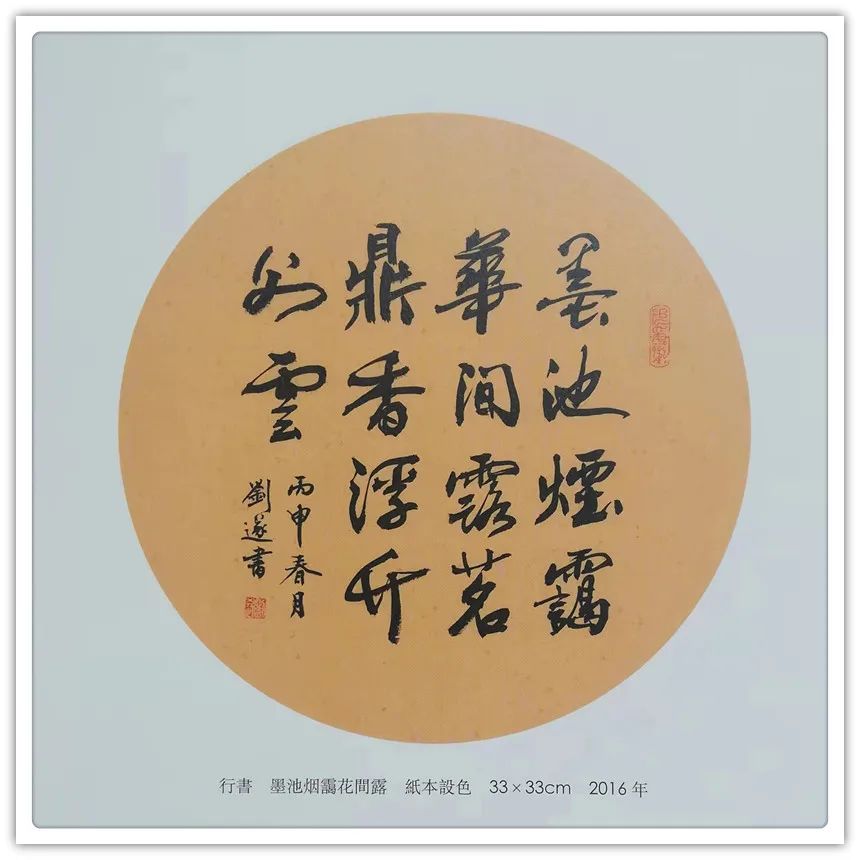 墨池煙靄
華間露茗
鼎香浮竹
外雲
丙申春月
劉遂書
行書 墨池烟靄花間露 紙本設色 33×33cm 2016年